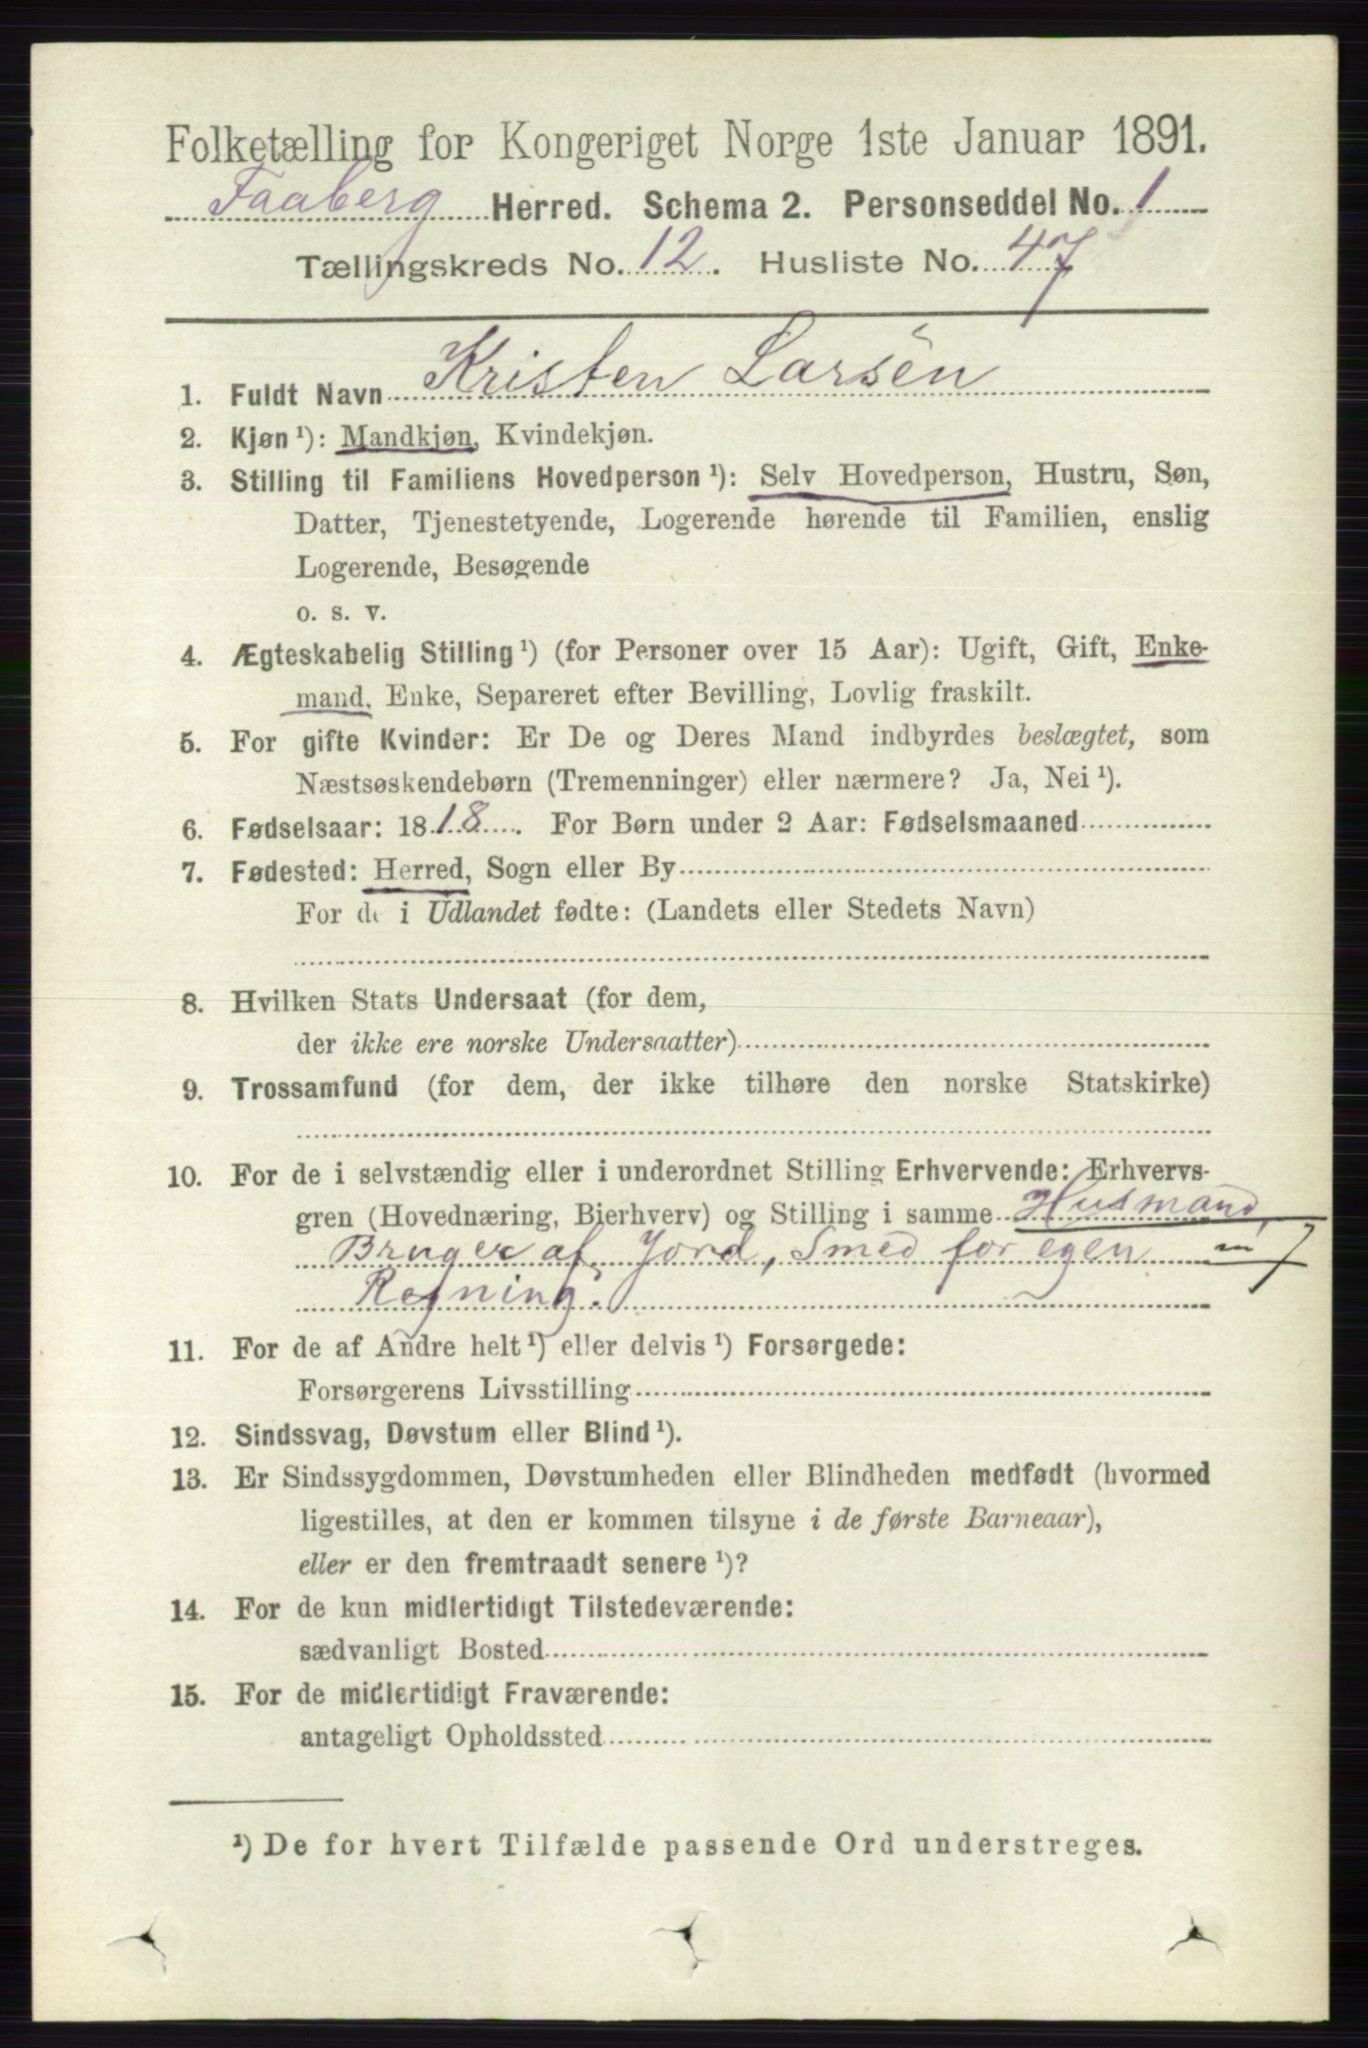 Folketælling for Kongeriget Norge 1ste Januar 1891.
Faaberg Herred. Schema 2. Personseddel No. 1
Tællingskreds No. 12. Husliste No. 47
1. Fuldt Navn Kristen Larsen
2. Kjøn ¹): Mandkjøn, Kvindekjøn.
3. Stilling til Familiens Hovedperson ¹): Selv Hovedperson, Hustru, Søn,
Datter, Tjenestetyende, Logerende hørende til Familien, enslig
Logerende, Besøgende
o. s. v.
4. Ægteskabelig Stilling ¹) (for Personer over 15 Aar): Ugift, Gift, Enke-
mand, Enke, Separeret efter Bevilling, Lovlig fraskilt.
5. For gifte Kvinder: Er De og Deres Mand indbyrdes beslægtet, som
Næstsøskendebørn (Tremenninger) eller nærmere? Ja, Nei ¹).
6. Fødselsaar: 1818. For Børn under 2 Aar: Fødselsmaaned
7. Fødested: Herred, Sogn eller By
For de i Udlandet fødte: (Landets eller Stedets Navn)
8. Hvilken Stats Undersaat (for dem,
der ikke ere norske Undersaatter)
9. Trossamfund (for dem, der ikke tilhøre den norske Statskirke)
10. For de i selvstændig eller i underordnet Stilling Erhvervende: Erhvervs-
gren (Hovednæring, Bierhverv) og Stilling i samme Husmand,
Bruger af Jord, Smed for egen
Regning.
11. For de af Andre helt ¹) eller delvis ¹) Forsørgede:
Forsørgerens Livsstilling
12. Sindssvag, Døvstum eller Blind ¹).
13. Er Sindssygdommen, Døvstumheden eller Blindheden medfødt (hvormed
ligestilles, at den er kommen tilsyne i de første Barneaar),
eller er den fremtraadt senere ¹)?
14. For de kun midlertidigt Tilstedeværende:
sædvanligt Bosted
15. For de midlertidigt Fraværende:
antageligt Opholdssted
¹) De for hvert Tilfælde passende Ord understreges.